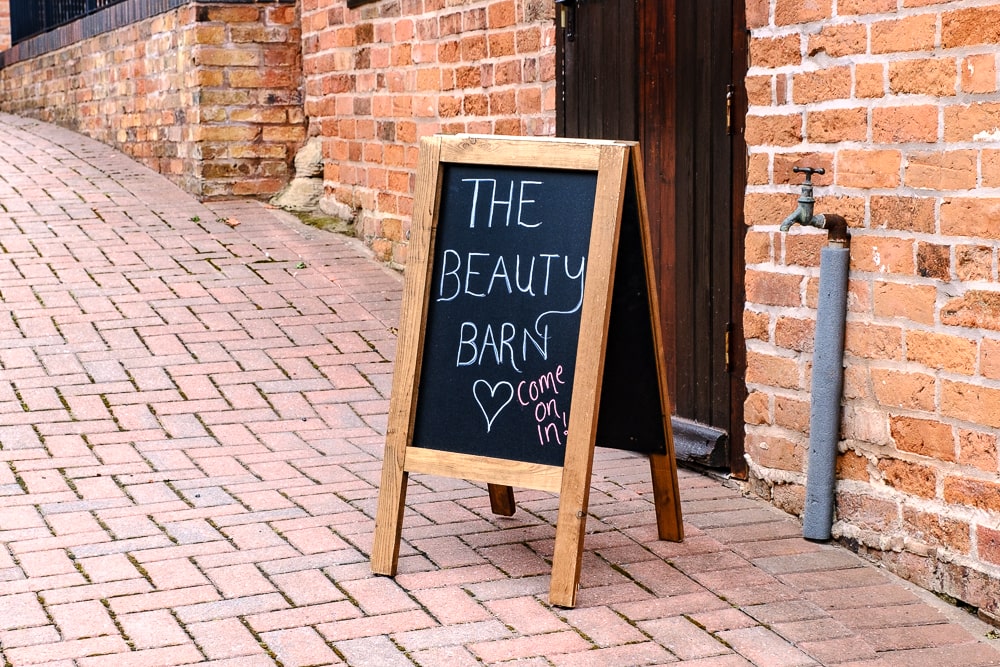 THE
BEAUTY
BARN
come
on
in!